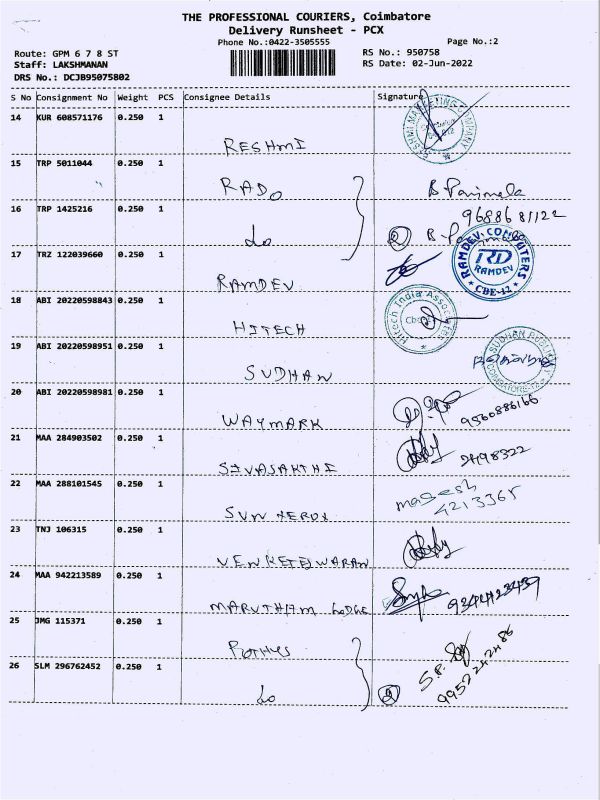 THE PROFESSIONAL COURIERS, Coimbatore
Delivery Runsheet - PCX
Phone No.:0422-3505555 Page No.:2
Route: GPM 6 7 8 ST RS No.: 950758
Staff: LAKSHMANAN RS Date: 02-Jun-2022
DRS No.: DCJB95075802
S No Consignment No Weight PCS Consignee Details Signature
14 KUR 608571176 0.250 1
RESHMI
15 TRP 5011044 0.250 1
RADO B. Parimela
9688681122
16 TRP 1425216 0.250 1
do
17 TRZ 122039660 0.250 1
RAMDEV RAMDEV COMPUTERS RD RAMDEV CBE-12
18 ABI 20220598843 0.250 1
HITECH Hitech India Associates
19 ABI 20220598951 0.250 1
SUDHAN SUDHAN
20 ABI 20220598981 0.250 1
WAYMARK 9560886166
21 MAA 284903502 0.250 1
SIVASAKTHI 2498322
22 MAA 288101545 0.250 1
SUN XEROX magesh
4213365
23 TNJ 106315 0.250 1
VENKETESWARAN
24 MAA 942213589 0.250 1
LODGE
25 JMG 115371 0.250 1
POTHYS
26 SLM 296762452 0.250 1
do 9952242486